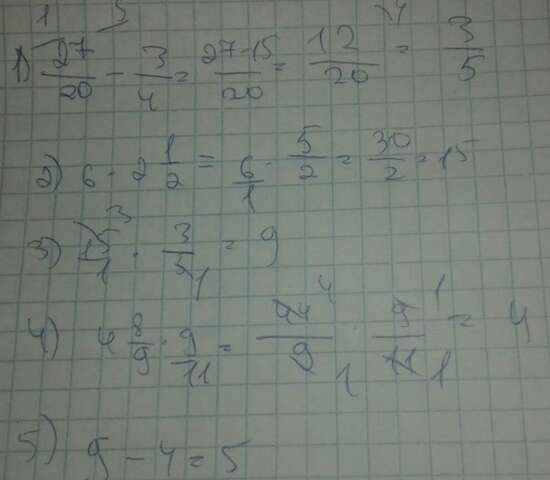 1) 27/20 - 3/4 = 27-15/20 = 12/20 = 3/5
2) 6 · 2 1/2 = 6/1 · 5/2 = 30/2 = 15
3) 15/1 · 3/5 = 9
4) 4 8/9 · 9/11 = 44/9 · 9/11 = 4
5) 9 - 4 = 5